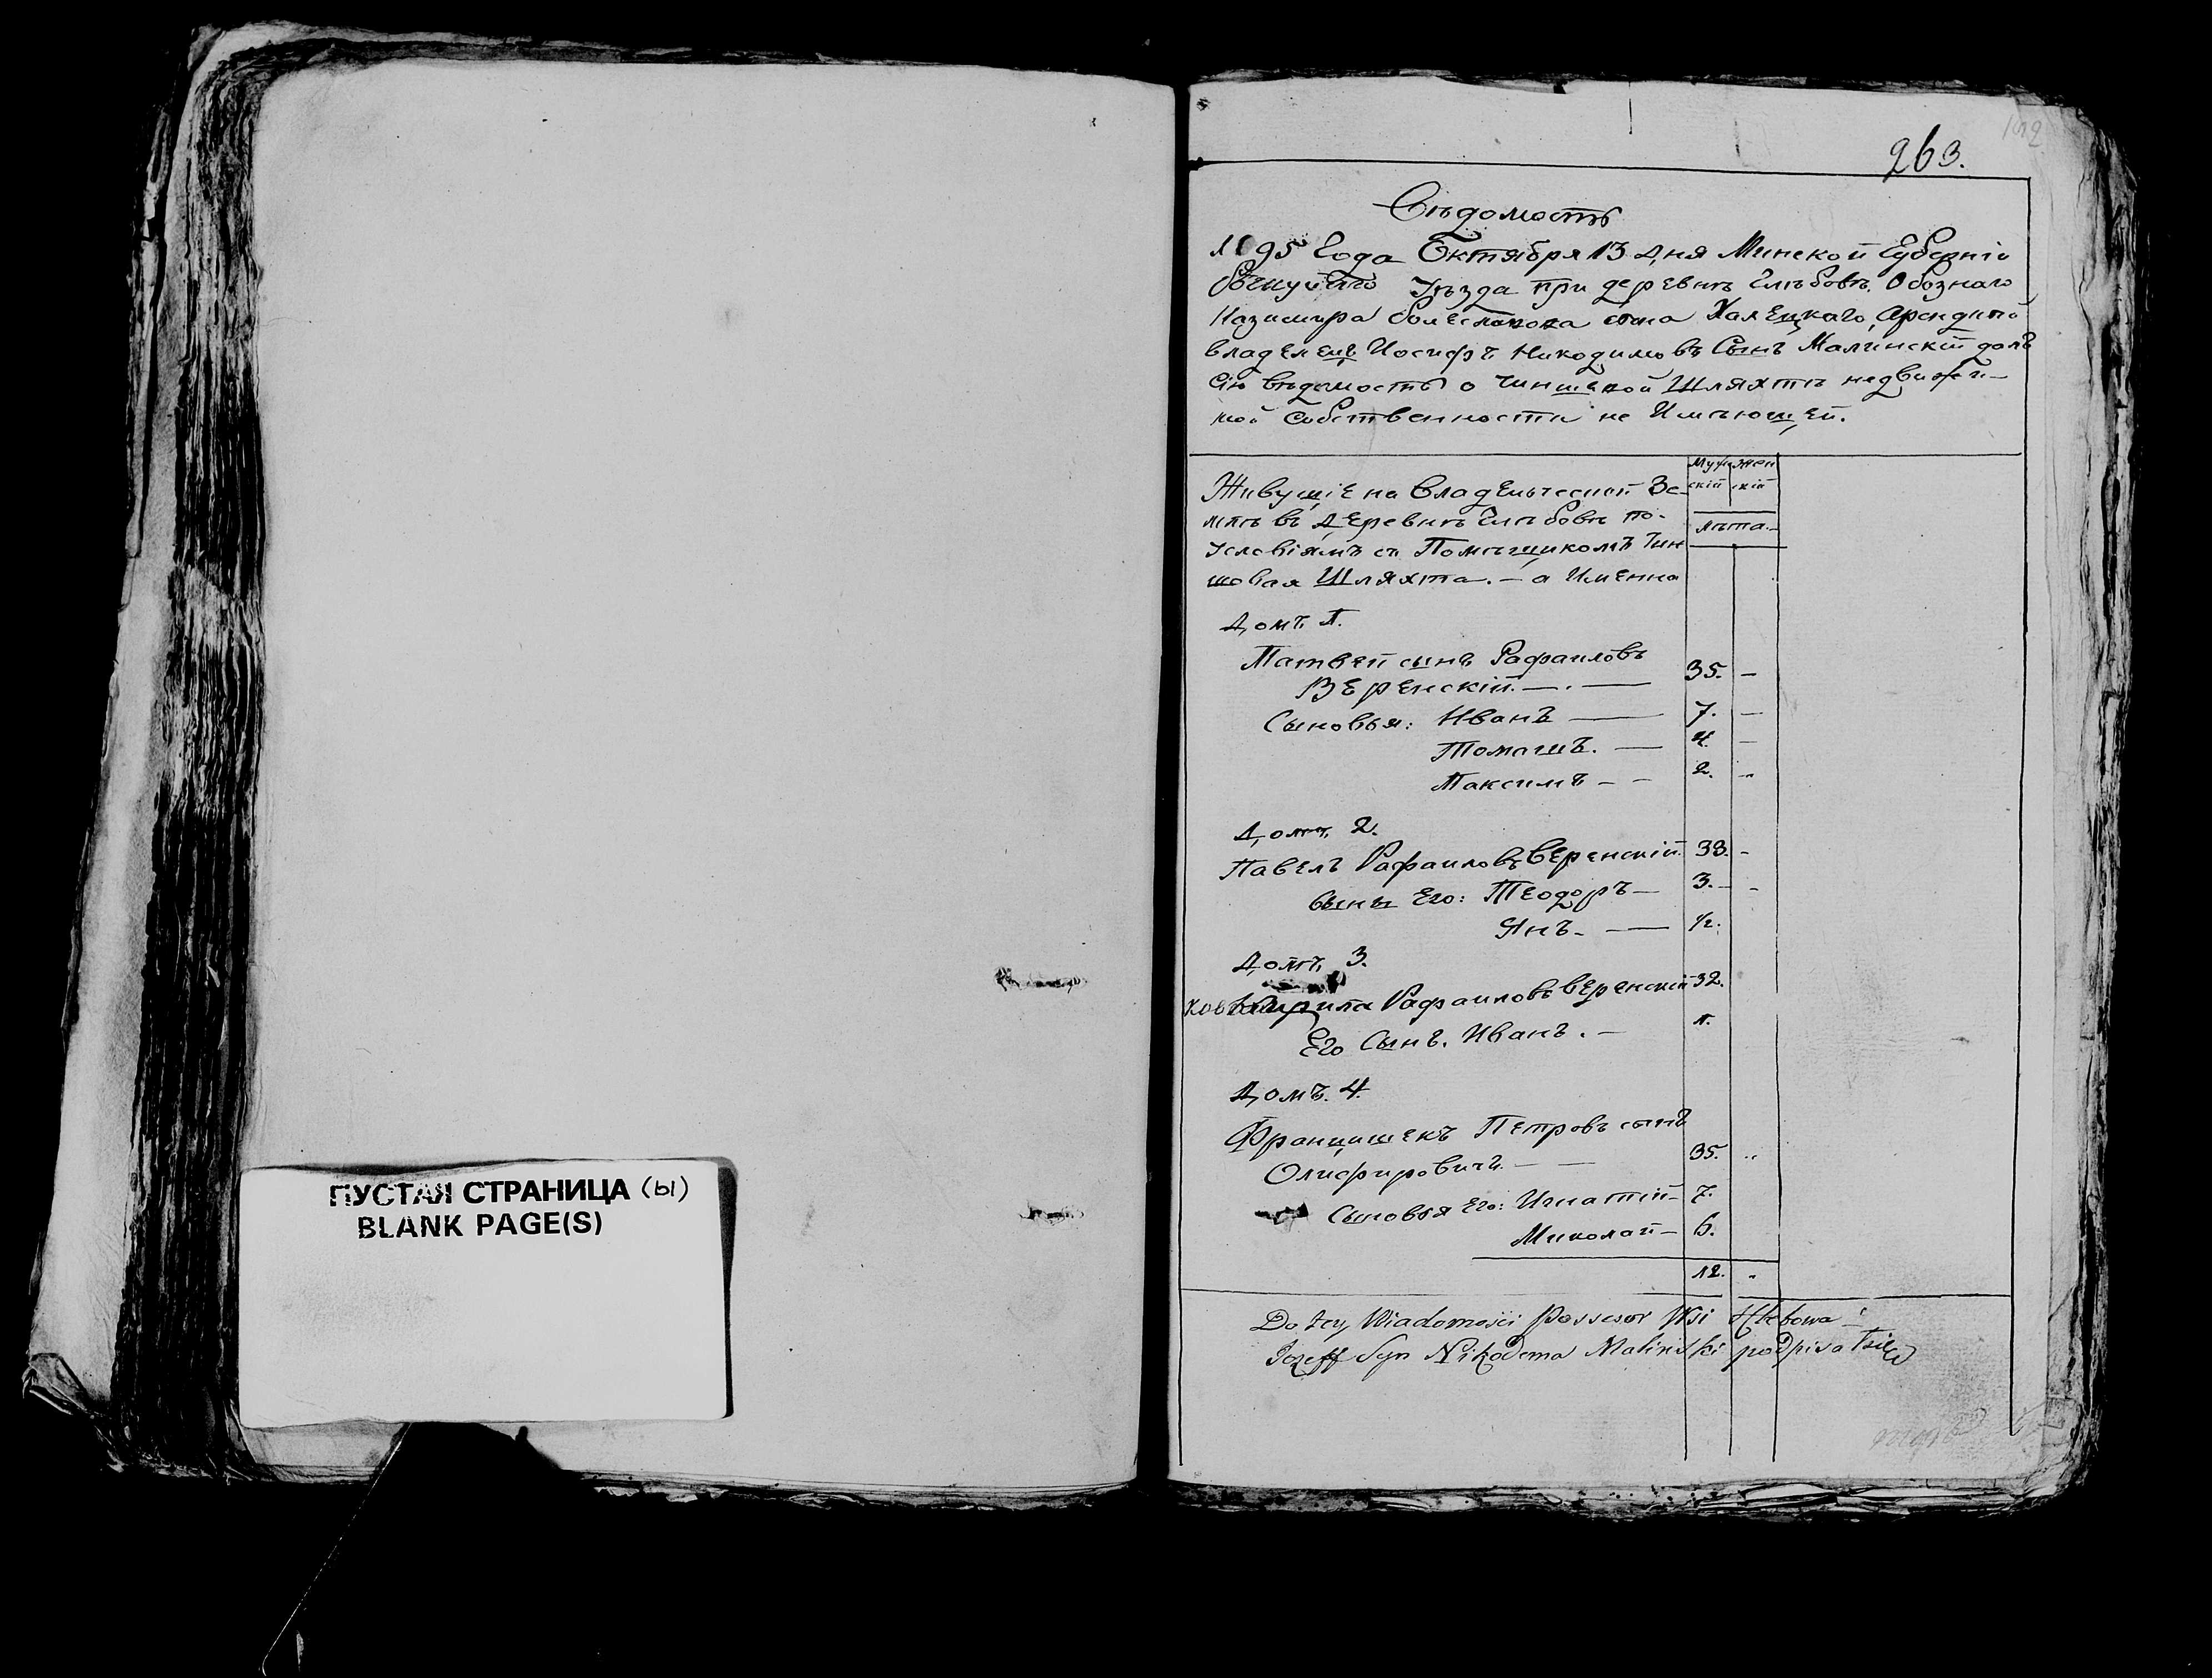 ПУСТАЯ СТРАНИЦА (ы)
BLANK PAGE(S)
263.
Вѣдомость
95 Года Октября 13 Дня Минской Губерніи
Уѣзда при деревнѣ Глѣбовѣ Обознаго
Казимира сына Халецкаго,
владелецъ Иосифъ Никодимовъ Сынъ Малинскій далъ
Сію вѣдомость о чиншевой Шляхтѣ недвижи-
мой собственности не Имѣющей.
Муж Жен
скій скій
Живущіе на Владельческой Зе-
млѣ въ Деревнѣ Глѣбовѣ по-
Условіямъ съ Помѣщикомъ Чин
шовая Шляхта. — а Именна
лѣта. —
Домъ 1.
Матвей сынъ Рафаиловъ
Веренскій. — . — 35. —
Сыновья: Иванъ — 7. —
Томашъ. — 4. —
Максимъ — — 2. „
Домъ 2.
Павелъ Рафаиловъ Веренскій 33. -
сыны Его: Теодоръ — 3. — -
Янъ. — 1/2.
Домъ 3.
Рафаиловъ Веренскій 32.
Его Сынъ. Иванъ. — 1.
Домъ. 4.
Францишекъ Петровъ сынъ
Олифировичъ. — — 35. „
Сыновья Его: Игнатій — 7.
Миколай — 6.
12. „
Do tey Wiadomości Possesor Wsi Hlebowa
Jozeff Syn Nikodema Malinski podpisał się